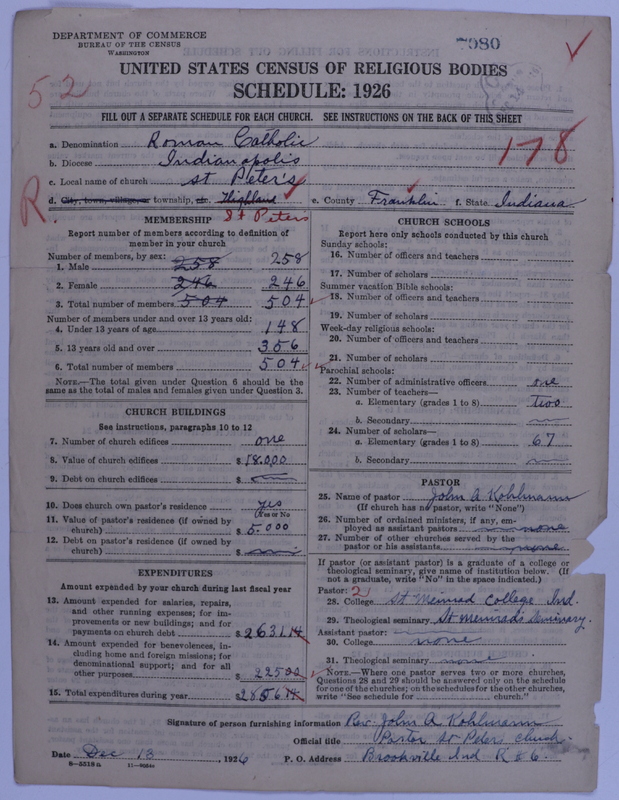 DEPARTMENT OF COMMERCE
BUREAU OF THE CENSUS
WASHINGTON
7080
UNITED STATES CENSUS OF RELIGIOUS BODIES
52
SCHEDULE: 1926
FILL OUT A SEPARATE SCHEDULE FOR EACH CHURCH. SEE INSTRUCTIONS ON THE BACK OF THIS SHEET
178
a. Denomination Roman Catholic
b. Diocese Indianapolis
c. Local name of church St Peter's
R.
d. City, town, village, or township, etc. Highland e. County Franklin f. State Indiana
St Peters
MEMBERSHIP
Report number of members according to definition of
member in your church
Number of members, by sex:
1. Male 258 258
2. Female 246 246
3. Total number of members 504 504
Number of members under and over 13 years old:
4. Under 13 years of age 148
5. 13 years old and over 356
6. Total number of members 504
NOTE.—The total given under Question 6 should be the
same as the total of males and females given under Question 3.
CHURCH BUILDINGS
See instructions, paragraphs 10 to 12
7. Number of church edifices one
8. Value of church edifices $ 18.000
9. Debt on church edifices $
10. Does church own pastor's residence yes
(Yes or No)
11. Value of pastor's residence (if owned by
church) $ 5.000
12. Debt on pastor's residence (if owned by
church) $
EXPENDITURES
Amount expended by your church during last fiscal year
13. Amount expended for salaries, repairs,
and other running expenses; for im-
provements or new buildings; and for
payments on church debt $ 2631.14
14. Amount expended for benevolences, in-
cluding home and foreign missions; for
denominational support; and for all
other purposes $ 225.00
15. Total expenditures during year $ 2856.14
CHURCH SCHOOLS
Report here only schools conducted by this church
Sunday schools:
16. Number of officers and teachers
17. Number of scholars
Summer vacation Bible schools:
18. Number of officers and teachers
19. Number of scholars
Week-day religious schools:
20. Number of officers and teachers
21. Number of scholars
Parochial schools:
22. Number of administrative officers one
23. Number of teachers—
a. Elementary (grades 1 to 8) two
b. Secondary
24. Number of scholars—
a. Elementary (grades 1 to 8) 67
b. Secondary
PASTOR
25. Name of pastor John A Kohlmann
(If church has no pastor, write "None")
26. Number of ordained ministers, if any, em-
ployed as assistant pastors none
27. Number of other churches served by the
pastor or his assistants none
If pastor (or assistant pastor) is a graduate of a college or
theological seminary, give name of institution below. (If
not a graduate, write "No" in the space indicated.)
Pastor: 2
28. College St Meinrad College Ind.
29. Theological seminary St Meinrads Seminary.
Assistant pastor:
30. College none
31. Theological seminary none
NOTE.—Where one pastor serves two or more churches,
Questions 28 and 29 should be answered only on the schedule
for one of the churches; on the schedules for the other churches,
write "See schedule for church."
Signature of person furnishing information Rev. John A Kohlmann
Official title Pastor St Peters church.
Date Dec 13, 1926 P. O. Address Brookville Ind R 6.
8—5518a